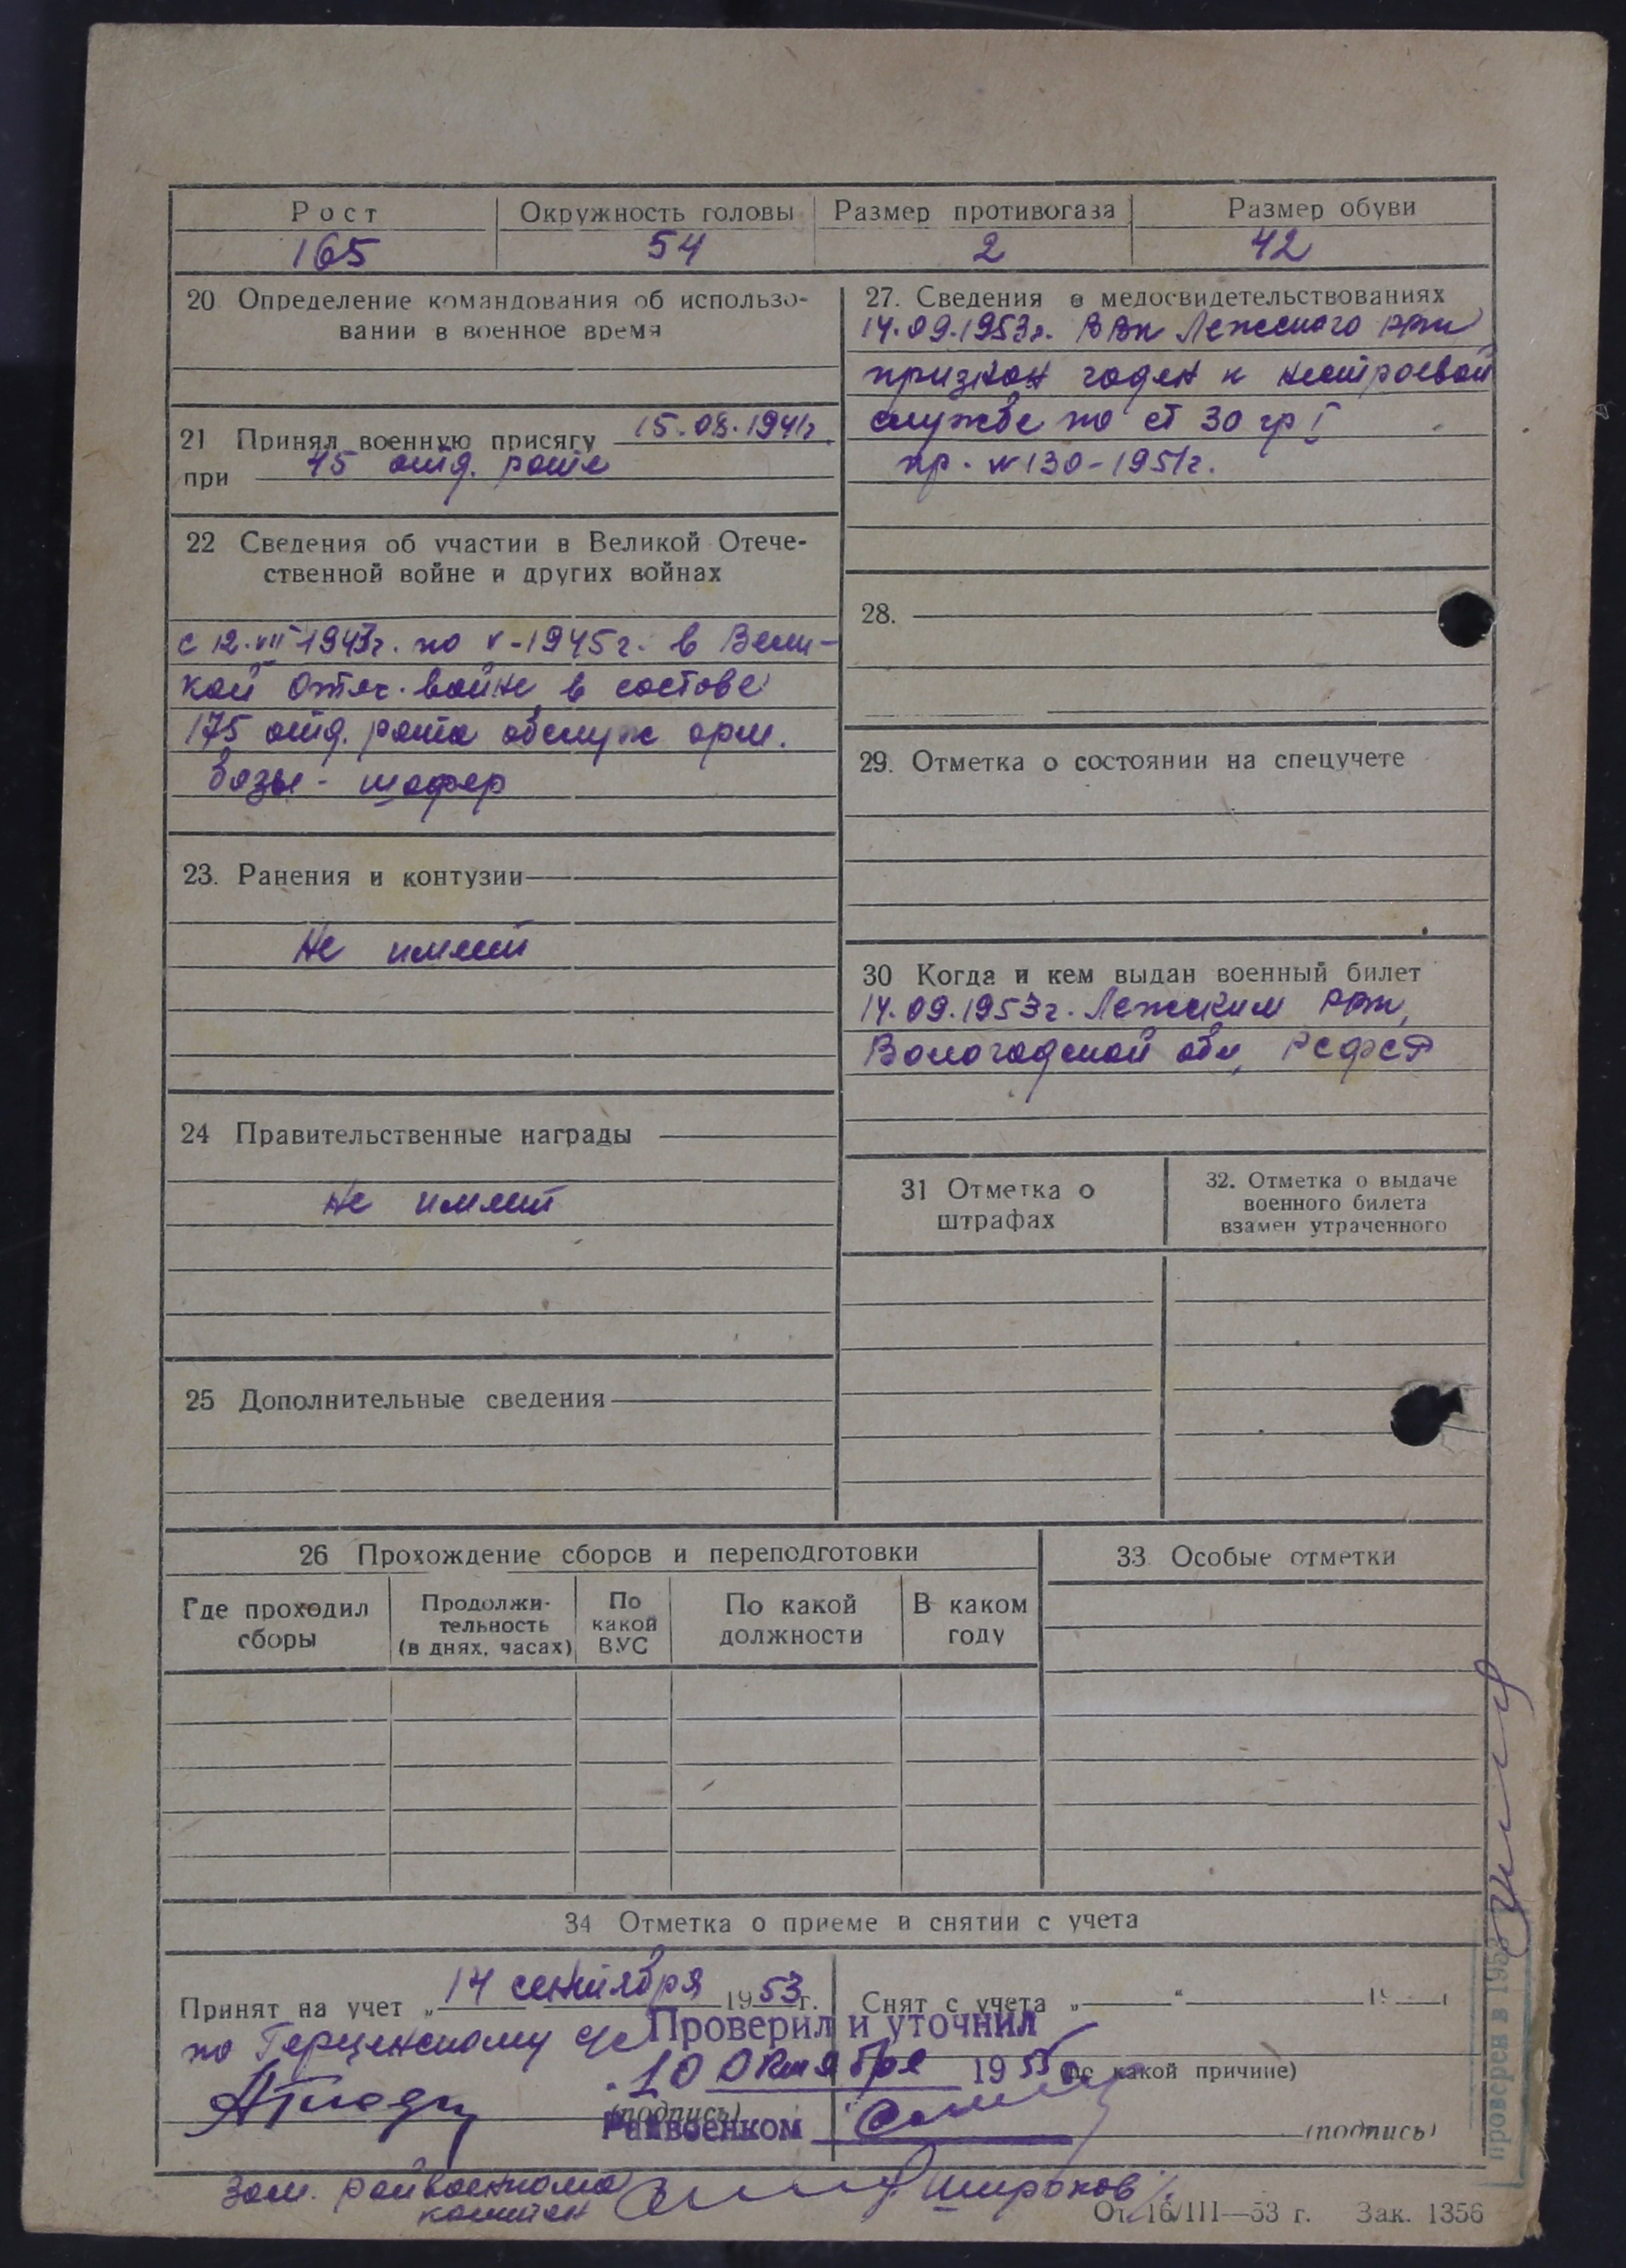 Рост Окружность головы Размер противогаза Размер обуви
165 54 2 42
20 Определение командования об использо-
вании в военное время
21 Принял военную присягу 15.08.1941г.
при 45 отд. роте
22 Сведения об участии в Великой Отече-
ственной войне и других войнах
с 12.VII 1943г. по V-1945г. в Вели-
кой Отеч. войне в составе
175 отд. рота обслуж арм.
базы - шофер
23. Ранения и контузии
Не имеет
24 Правительственные награды
Не имеет
25 Дополнительные сведения
27. Сведения о медосвидетельствованиях
14.09.1953г. ВВК Лежского РВК
признан годен к нестроевой
службе по ст 30 гр I
пр. N 130-1951г.
28.
29. Отметка о состоянии на спецучете
30 Когда и кем выдан военный билет
14.09.1953г. Лежским РВК,
Вологодской обл, РСФСР
31 Отметка о
штрафах
32. Отметка о выдаче
военного билета
взамен утраченного
26 Прохождение сборов и переподготовки
Где проходил
сборы
Продолжи-
тельность
(в днях, часах)
По
какой
ВУС
По какой
должности
В каком
году
33 Особые отметки
34 Отметка о приеме и снятии с учета
Принят на учет „14 сентября 1953г.
по Герценскому с/с
(подпись)
Снят с учета „ “ 19 г
(по какой причине)
(подпись)
Проверил и уточнил
10 Октября 1955
Райвоенком
Зам. райвоенкома
капитан Широков
От 16/III—53 г. Зак. 1356
проверен в 195